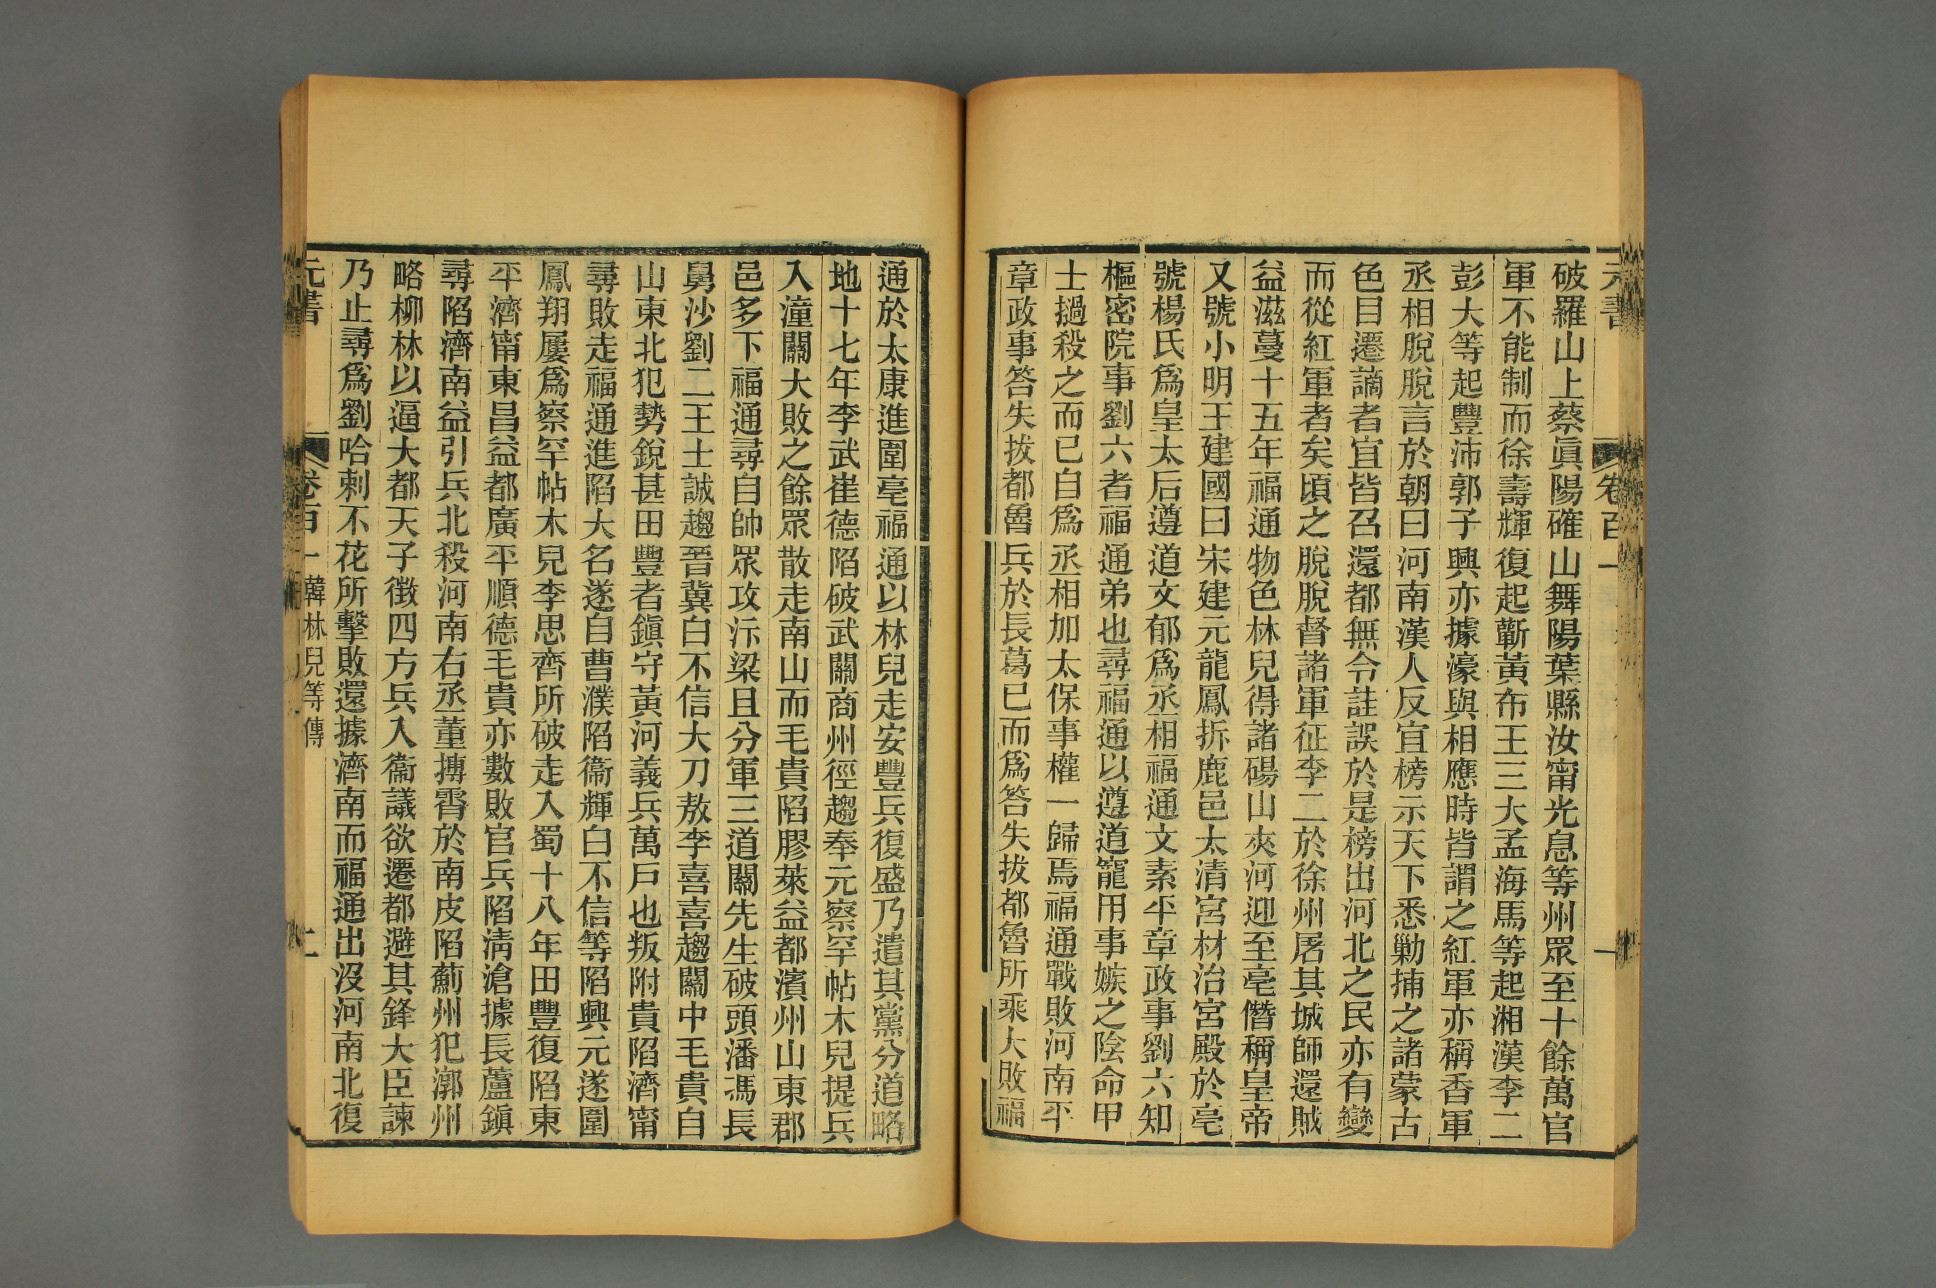 元書
卷百一
破羅山上蔡眞陽確山舞陽葉縣汝甯光息等州眾至十餘萬官
軍不能制而徐壽輝復起蘄黃布王三大孟海馬等起湘漢李二
彭大等起豐沛郭子興亦據濠與相應時皆謂之紅軍亦稱香軍
丞相脫脫言於朝曰河南漢人反宜榜示天下悉勦捕之諸蒙古
色目遷謫者宜皆召還都無令詿誤於是榜出河北之民亦有變
而從紅軍者矣頃之脫脫督諸軍征李二於徐州屠其城師還賊
益滋蔓十五年福通物色林兒得諸碭山夾河迎至亳僭稱皇帝
又號小明王建國曰宋建元龍鳳拆鹿邑太清宮材治宮殿於亳
號楊氏爲皇太后遵道文郁爲丞相福通文素平章政事劉六知
樞密院事劉六者福通弟也尋福通以遵道寵用事嫉之陰命甲
士撾殺之而已自爲丞相加太保事權一歸焉福通戰敗河南平
章政事答失拔都魯兵於長葛已而爲答失拔都魯所乘大敗福
通於太康進圍亳福通以林兒走安豐兵復盛乃遣其黨分道略
地十七年李武崔德陷破武關商州徑趨奉元察罕帖木兒提兵
入潼關大敗之餘眾散走南山而毛貴陷膠萊益都濱州山東郡
邑多下福通尋自帥眾攻汴梁且分軍三道關先生破頭潘馮長
舅沙劉二王士誠趨晉冀白不信大刀敖李喜喜趨關中毛貴自
山東北犯勢銳甚田豐者鎭守黃河義兵萬戶也叛附貴陷濟甯
尋敗走福通進陷大名遂自曹濮陷衞輝白不信等陷興元遂圍
鳳翔屢爲察罕帖木兒李思齊所破走入蜀十八年田豐復陷東
平濟甯東昌益都廣平順德毛貴亦數敗官兵陷淸滄據長蘆鎭
尋陷濟南益引兵北殺河南右丞董摶霄於南皮陷薊州犯漷州
略柳林以逼大都天子徵四方兵入衞議欲遷都避其鋒大臣諫
乃止尋爲劉哈剌不花所擊敗還據濟南而福通出沒河南北復
元書
卷百一 韓林兒等傳
二